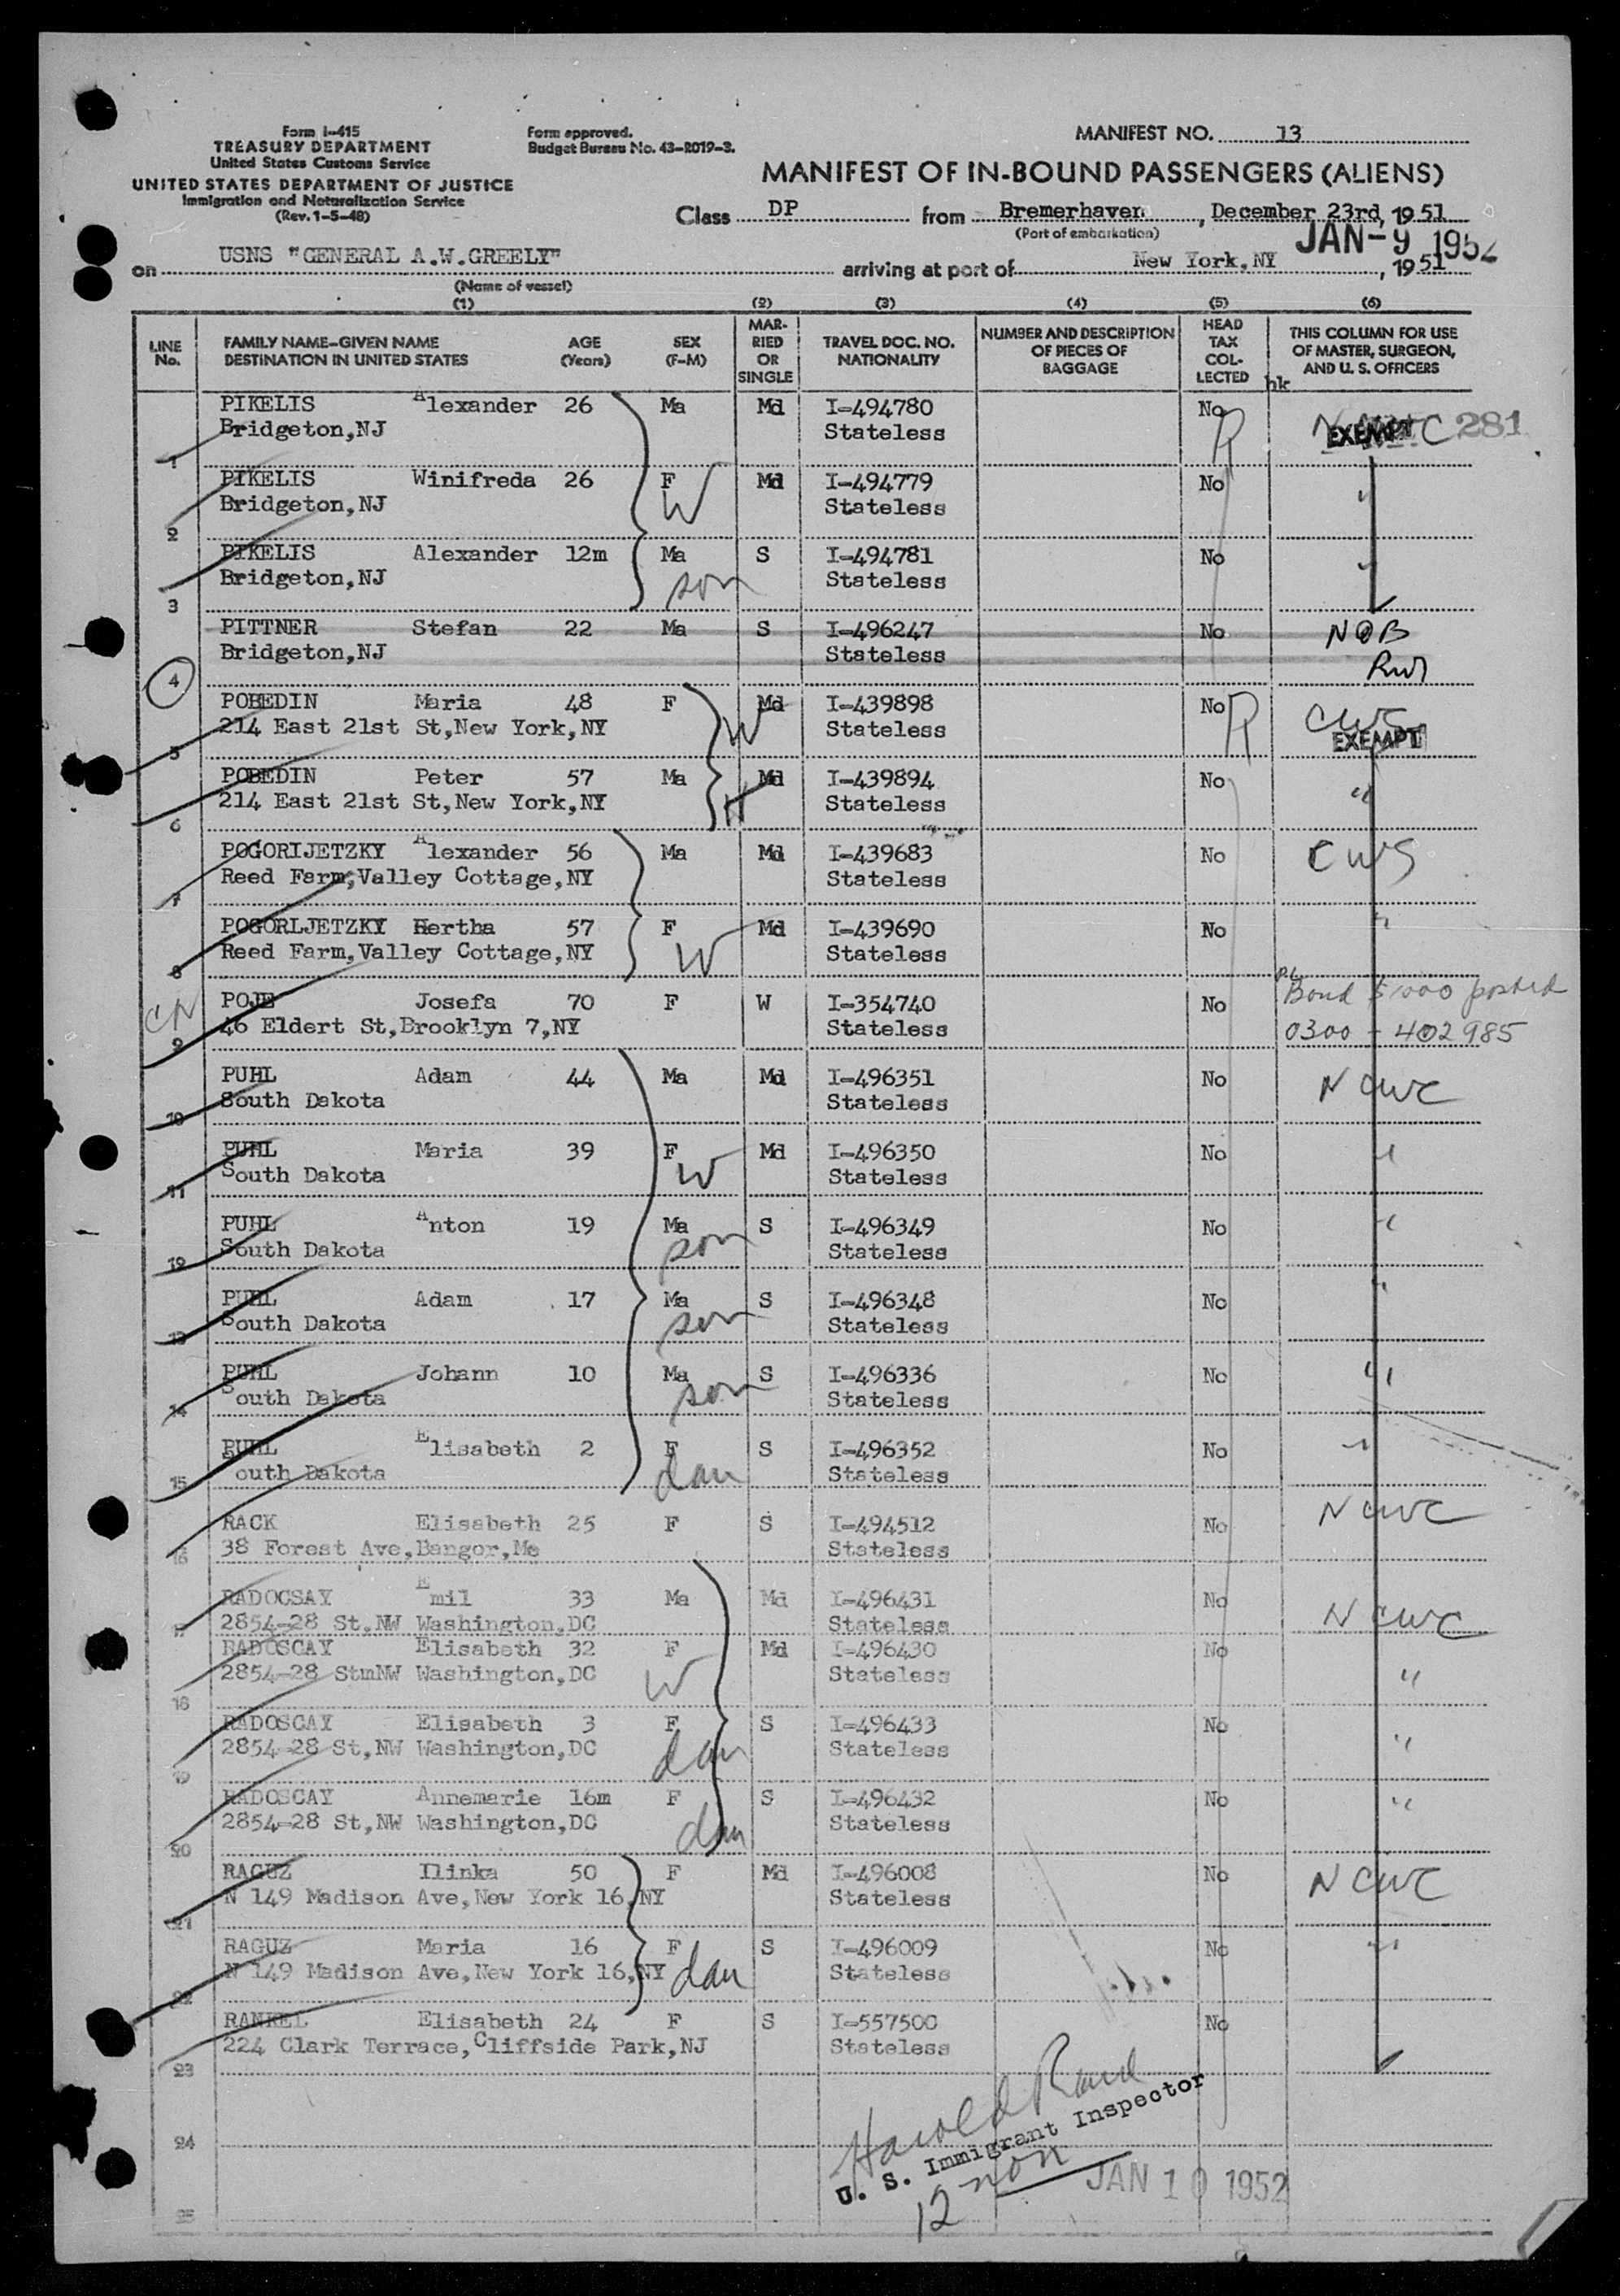 Form I-415
TREASURY DEPARTMENT
United States Customs Service
UNITED STATES DEPARTMENT OF JUSTICE
Immigration and Naturalization Service
(Rev. 1-5-48)
Form approved.
Budget Bureau No. 43-R019-3.
MANIFEST NO. 13
MANIFEST OF IN-BOUND PASSENGERS (ALIENS)
Class DP from Bremerhaven, December 23rd, 1951
(Port of embarkation)
JAN-9 1952
on USNS "GENERAL A.W.GREELY" arriving at port of New York,NY, 1951
(Name of vessel)
(1) (2) (3) (4) (5) (6)
LINE No. FAMILY NAME-GIVEN NAME DESTINATION IN UNITED STATES AGE (Years) SEX (F-M) MARRIED OR SINGLE TRAVEL DOC. NO. NATIONALITY NUMBER AND DESCRIPTION OF PIECES OF BAGGAGE HEAD TAX COLLECTED THIS COLUMN FOR USE OF MASTER, SURGEON, AND U. S. OFFICERS
hk
PIKELIS Alexander 26 Ma Md I-494780 No EXEMPT 281
1 Bridgeton,NJ Stateless
PIKELIS Winifreda 26 F W Md I-494779 No "
2 Bridgeton,NJ Stateless
PIKELIS Alexander 12m Ma S I-494781 No "
3 Bridgeton,NJ son Stateless
PITTNER Stefan 22 Ma S I-496247 No NOB
4 Bridgeton,NJ Stateless
POBEDIN Maria 48 F W Md I-439898 No CWS
5 214 East 21st St,New York,NY Stateless EXEMPT
POBEDIN Peter 57 Ma H Md I-439894 No "
6 214 East 21st St,New York,NY Stateless
POGORIJETZKY Alexander 56 Ma Md I-439683 No CWS
7 Reed Farm,Valley Cottage,NY Stateless
POGORLJETZKY Hertha 57 F W Md I-439690 No "
8 Reed Farm,Valley Cottage,NY Stateless
POJE Josefa 70 F W I-354740 No Bond $1000 posted
9 46 Eldert St,Brooklyn 7,NY Stateless 0300-402985
PUHL Adam 44 Ma Md I-496351 No NCWC
10 South Dakota Stateless
PUHL Maria 39 F W Md I-496350 No "
11 South Dakota Stateless
PUHL Anton 19 Ma S I-496349 No "
12 South Dakota son Stateless
PUHL Adam 17 Ma S I-496348 No "
13 South Dakota son Stateless
PUHL Johann 10 Ma S I-496336 No "
14 South Dakota son Stateless
PUHL Elisabeth 2 F S I-496352 No "
15 outh Dakota dau Stateless
RACK Elisabeth 25 F S I-494512 No NCWC
16 38 Forest Ave,Bangor,Me Stateless
RADOCSAY Emil 33 Ma Md I-496431 No NCWC
17 2854-28 St,NW Washington,DC Stateless
RADOSCAY Elisabeth 32 F W Md I-496430 No "
18 2854-28 StmNW Washington,DC Stateless
RADOSCAY Elisabeth 3 F S I-496433 No "
19 2854-28 St,NW Washington,DC dau Stateless
RADOSCAY Annemarie 16m F S I-496432 No "
20 2854-28 St,NW Washington,DC dau Stateless
RAGUZ Ilinka 50 F Md I-496008 No NCWC
21 N 149 Madison Ave,New York 16,NY Stateless
RAGUZ Maria 16 F S I-496009 No "
22 N 149 Madison Ave,New York 16,NY dau Stateless
RANKEL Elisabeth 24 F S I-557500 No
23 224 Clark Terrace,Cliffside Park,NJ Stateless
24
Harold
U. S. Immigrant Inspector
12 non
JAN 10 1952
25